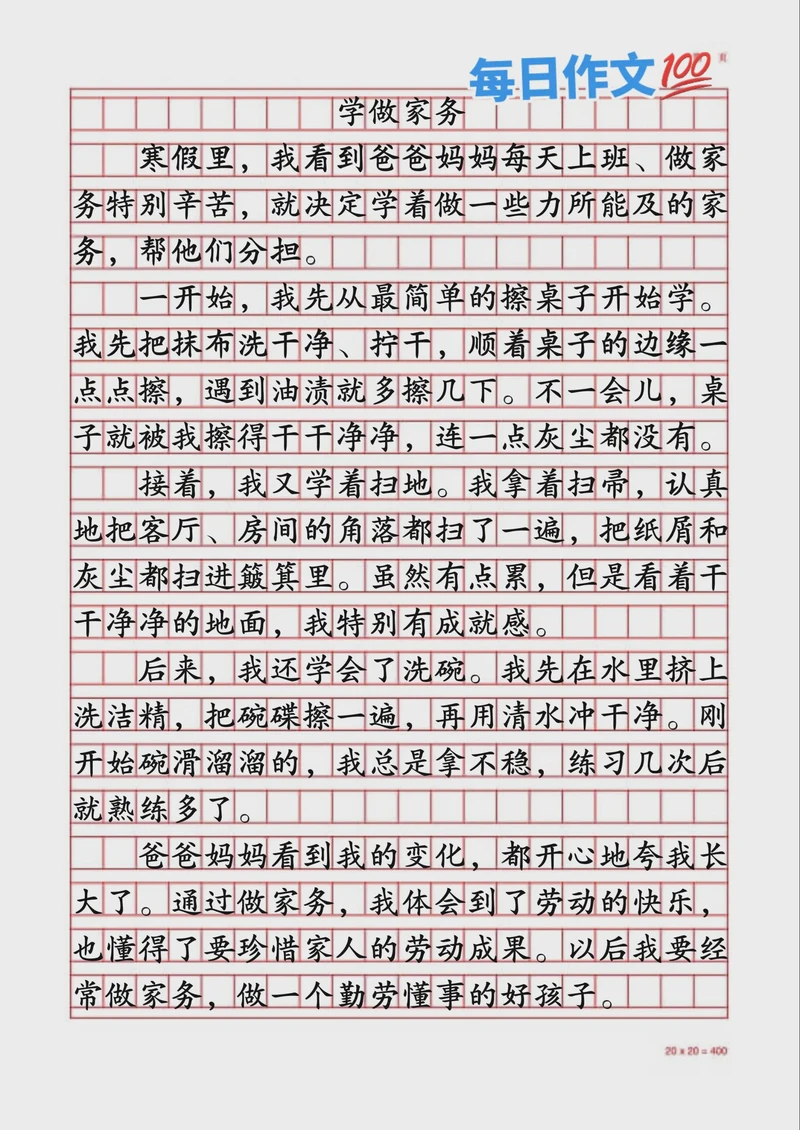 每日作文100 页
学做家务
寒假里，我看到爸爸妈妈每天上班、做家
务特别辛苦，就决定学着做一些力所能及的家
务，帮他们分担。
一开始，我先从最简单的擦桌子开始学。
我先把抹布洗干净、拧干，顺着桌子的边缘一
点点擦，遇到油渍就多擦几下。不一会儿，桌
子就被我擦得干干净净，连一点灰尘都没有。
接着，我又学着扫地。我拿着扫帚，认真
地把客厅、房间的角落都扫了一遍，把纸屑和
灰尘都扫进簸箕里。虽然有点累，但是看着干
干净净的地面，我特别有成就感。
后来，我还学会了洗碗。我先在水里挤上
洗洁精，把碗碟擦一遍，再用清水冲干净。刚
开始碗滑溜溜的，我总是拿不稳，练习几次后
就熟练多了。
爸爸妈妈看到我的变化，都开心地夸我长
大了。通过做家务，我体会到了劳动的快乐，
也懂得了要珍惜家人的劳动成果。以后我要经
常做家务，做一个勤劳懂事的好孩子。
20 x 20 = 400